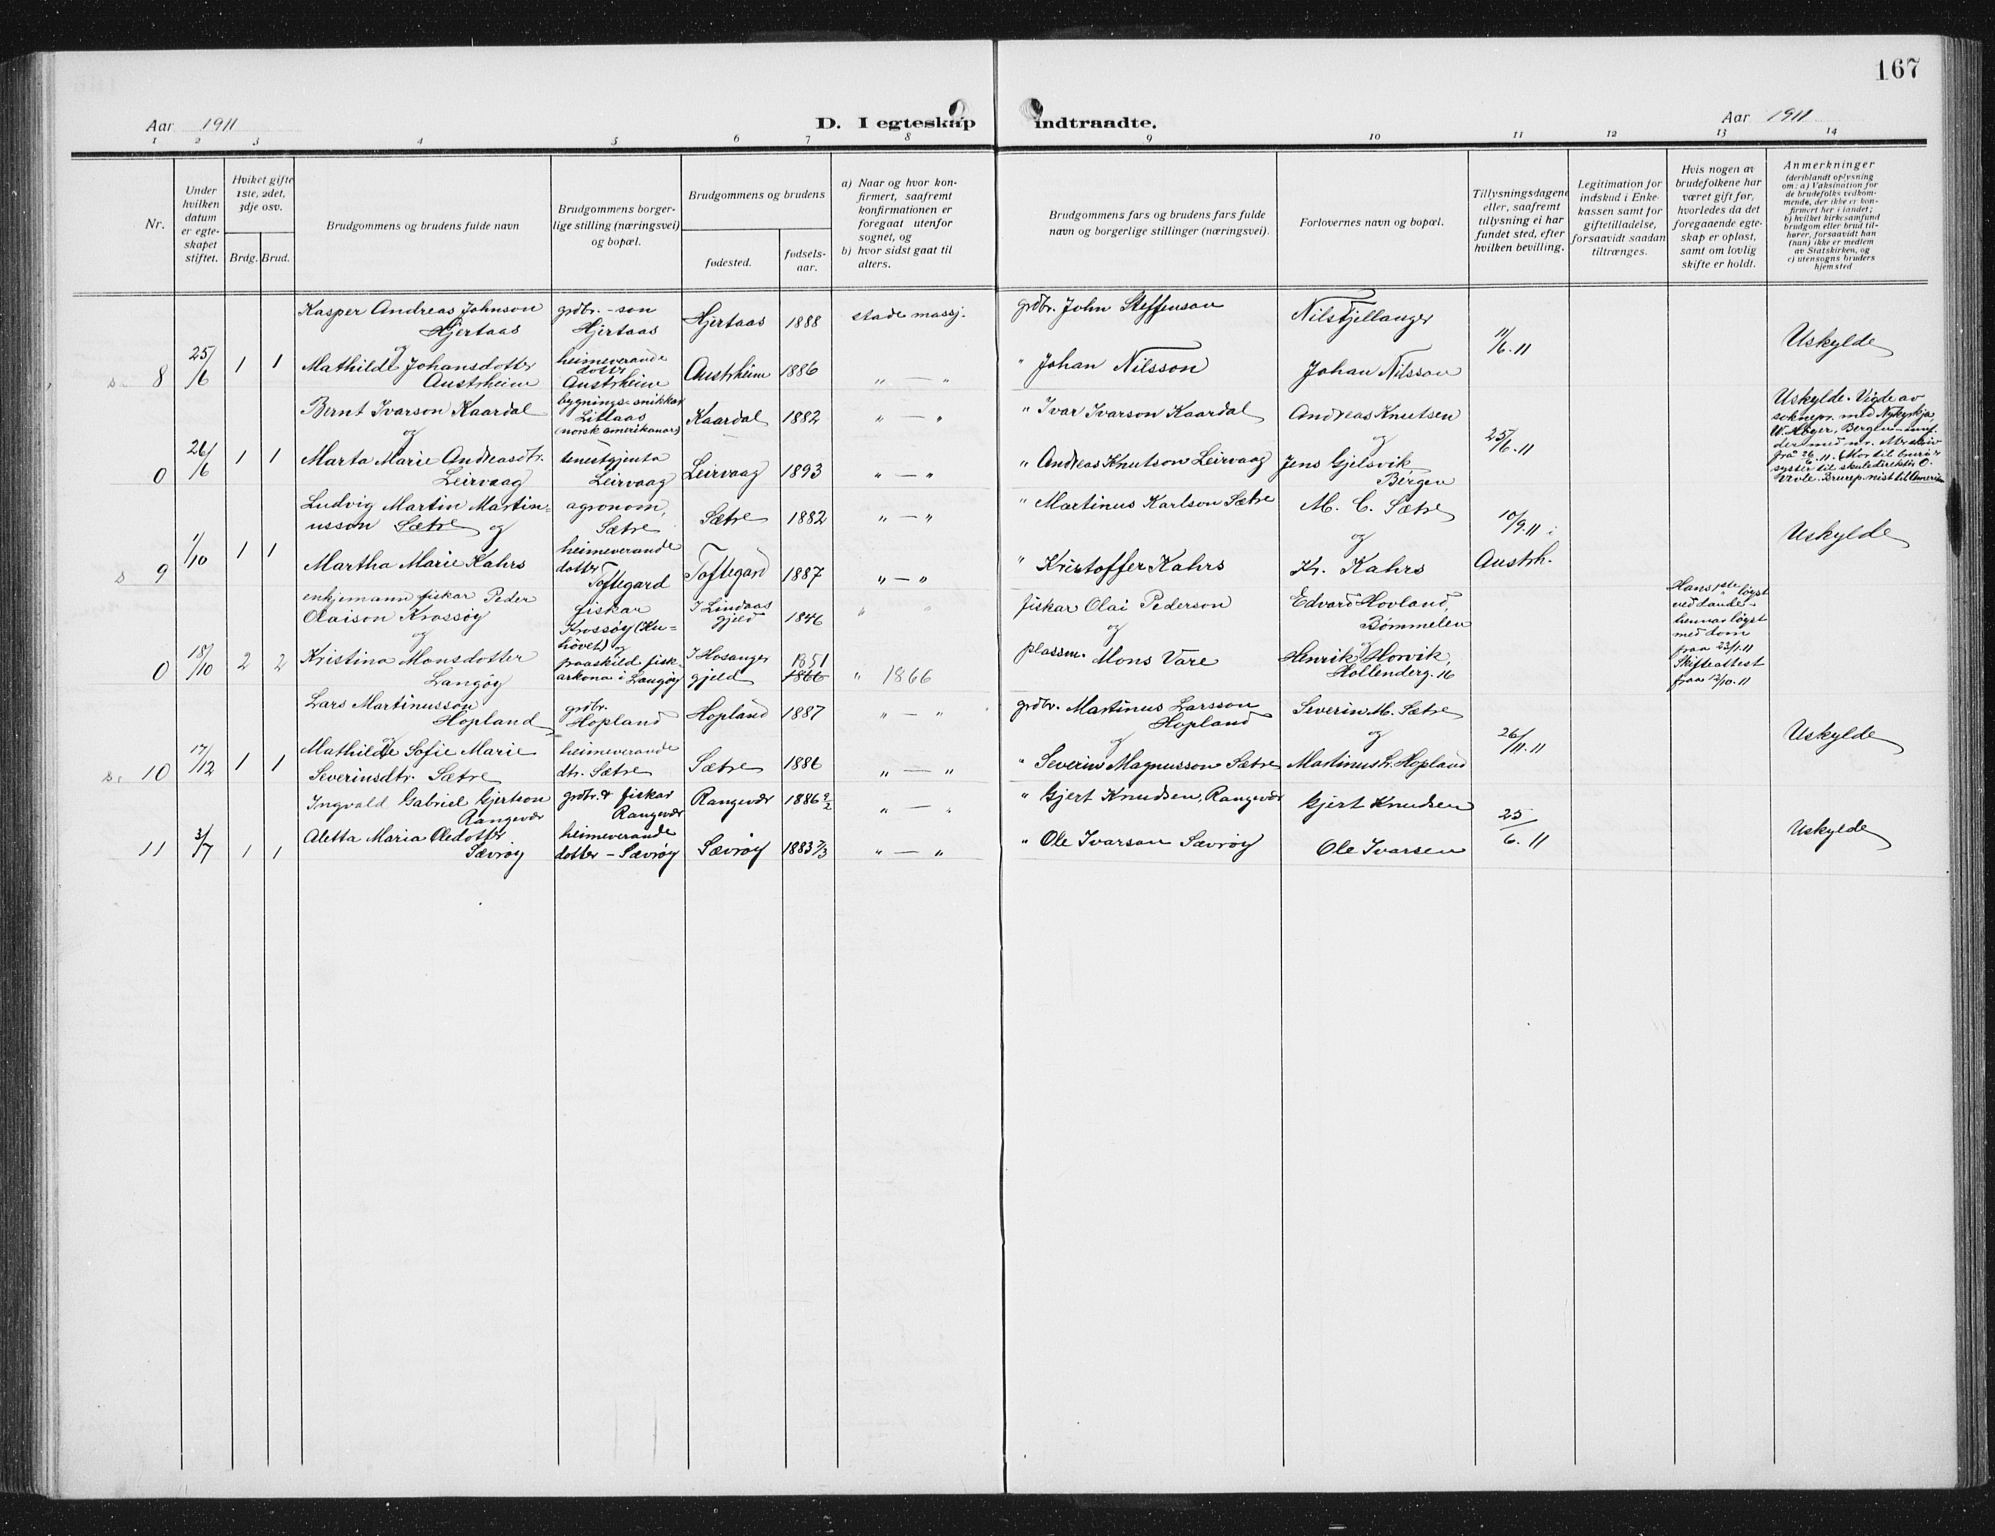 167
Aar 1911
D. I egteskap indtraadte.
Aar 1911
1 2 3 4 5 6 7 8 9 10 11 12 13 14
Nr.
Under
hvilken
datum
er egte-
skapet
stiftet.
Hviket gifte
1ste, 2det,
3dje osv.
Brdg. Brud.
Brudgommens og brudens fulde navn
Brudgommens borger-
lige stilling (næringsvei)
og bopæl.
Brudgommens og brudens
fødested.
fødsels-
aar.
a) Naar og hvor kon-
firmert, saafremt
konfirmationen er
foregaat utenfor
sognet, og
b) hvor sidst gaat til
alters.
Brudgommens fars og brudens fars fulde
navn og borgerlige stillinger (næringsvei).
Forlovernes navn og bopæl.
Tillysningsdagene
eller, saafremt
tillysning ei har
fundet sted, efter
hvilken bevilling.
Legitimation for
indskud i Enke-
kassen samt for
giftetilladelse,
forsaavidt saadan
tiltrænges.
Hvis nogen av
brudefolkene har
været gift før,
hvorledes da det
foregaaende egte-
skap er opløst,
samt om lovlig
skifte er holdt.
Anmerkninger
(deriblandt oplysning
om: a) Vaksination for
de brudefolks vedkom-
mende, der ikke er kon-
firmert her i landet;
b) hvilket kirkesamfund
brudgom eller brud til-
hører, forsaavidt han
(hun) ikke er medlem
av Statskirken, og
c) utensogns bruders
hjemsted
8 25/6 1 1
Kasper Andreas Johnson
Hjertaas
og
Mathilde Johansdotter
Austrheim
grdbr.-son
Hjertaas
heimeverande
dotter
Austrheim
Hjertaas 1888
Austrheim 1886
stade massj.
" — "
grdbr. John Steffenson
" Johan Nilsson
Nils Fjellanger
Johan Nilsson
11/6.11
Uskylde
0 26/6 1 1
Bernt Ivarson Kaardal
og
Marta Marie Andreasdtr.
Leirvaag
bygnings-snikkar
Litlaas
(norsk amerikanar)
tenestgjenta
Leirvaag
Kaardal 1882
Leirvaag 1893
" — "
" — "
" Ivar Ivarson Kaardal
" Andreas Knutson Leirvaag
Andreas Knutsen
og
Jens Gjelsvik
Bergen
25/6.11
Uskylde. Vigde av
soknepr. med Nykyrkja
9 1/10 1 1
Ludvig Martin Martin-
usson Sætre og
Martha Marie Kahrs
agronom,
Sætre
heimeverande
dotter
Toftegard
Sætre 1882
Toftegard 1887
" — "
" — "
" Martinus Karlson Sætre
" Kristoffer Kahrs
M. C. Sætre
og
Kr. Kahrs
10/9.11 i
Austrh.
Uskylde
0 18/10 2 2
enkjemann fiskar Peder
Olaison Krossøy
og
Kristina Monsdotter
Langøy
fiskar
Krossøy (Hu-
høvet) og
fraaskild fisk-
arkona i Langøy
I Lindaas
gjeld 1846
I Hosanger
gjeld 1851
1866
" "
" 1866
fiskar Olai Pederson
og
plassm. Mons Vare
Edvard Hovland,
Bømmelen
og
Henrik Horvik,
Hollenderg. 16
Hans 1ste løyst
ved daude-
hennar løyst
med dom
fraa 23/1.11
Skifteattest
fraa 12/10.11
10 17/12 1 1
Lars Martinusson
Hopland
og
Mathilde Sofie Marie
Severinsdtr. Sætre
grdbr.
Hopland
heimeverande
dtr. Sætre
Hopland 1887
Sætre 1886
" — "
" — "
grdbr. Martinus Larsson
Hopland
og
" Severin Magnusson Sætre
Severin M. Sætre
og
Martinus L. Hopland
26/11.11
Uskylde
11 3/7 1 1
Ingvald Gabriel Gjertson
Rangevær
Aletta Maria Oledotter
Sævrøy
grdbr. & fiskar
Rangevær
heimeverande
dotter – Sævrøy
Rangevær 1886 2/2
Sævrøy 1883 7/3
" — "
" — "
" Gjert Knudsen, Rangevær
" Ole Ivarson Sævrøy
Gjert Knudsen
Ole Ivarsen
25/6.11
Uskylde